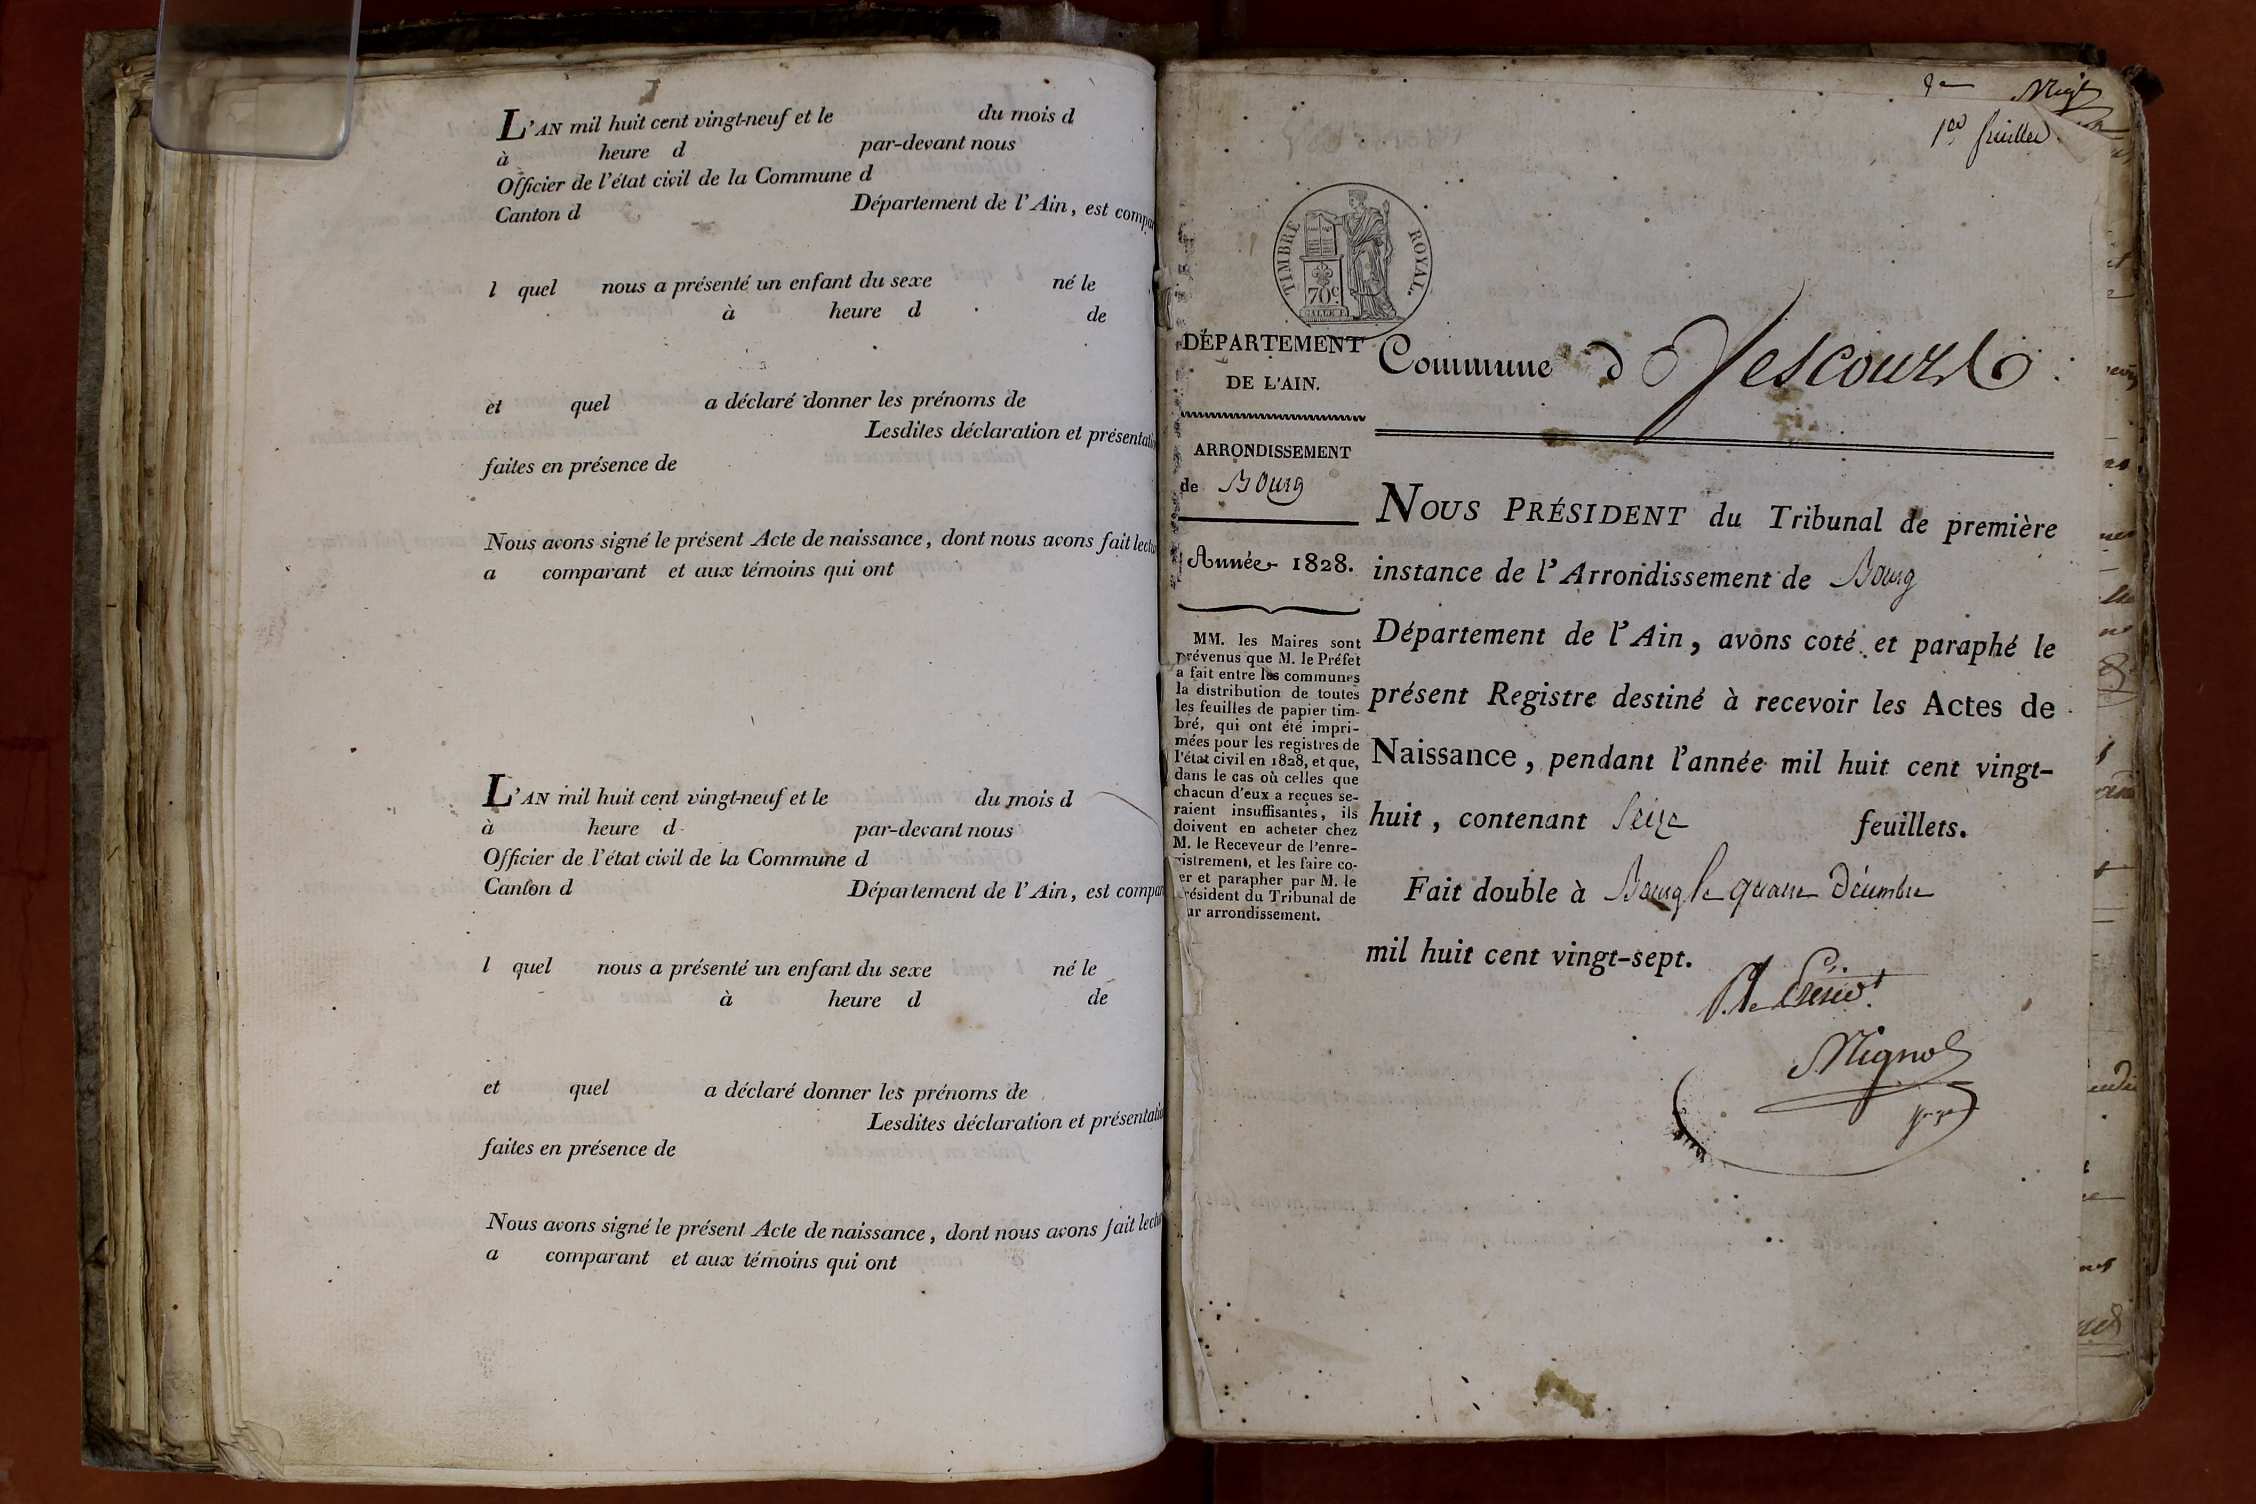 L'AN mil huit cent vingt-neuf et le du mois d
à heure d par-devant nous
Officier de l'état civil de la Commune d
Canton d Département de l'Ain, est compa
l quel nous a présenté un enfant du sexe né le
à heure d de
et quel a déclaré donner les prénoms de
Lesdites déclaration et présentati
faites en présence de
Nous avons signé le présent Acte de naissance, dont nous avons fait lectu
a comparant et aux témoins qui ont
L'AN mil huit cent vingt-neuf et le du mois d
à heure d par-devant nous
Officier de l'état civil de la Commune d
Canton d Département de l'Ain, est compar
l quel nous a présenté un enfant du sexe né le
à heure d de
et quel a déclaré donner les prénoms de
Lesdites déclaration et présentatio
faites en présence de
Nous avons signé le présent Acte de naissance, dont nous avons fait lectu
a comparant et aux témoins qui ont
1er feuillet
TIMBRE ROYAL.
70c
DÉPARTEMENT
DE L'AIN.
ARRONDISSEMENT
de Bourg
Année 1828.
MM. les Maires sont
prévenus que M. le Préfet
a fait entre les communes
la distribution de toutes
les feuilles de papier tim-
bré, qui ont été impri-
mées pour les registres de
l'état civil en 1828, et que,
dans le cas où celles que
chacun d'eux a reçues se-
raient insuffisantes, ils
doivent en acheter chez
M. le Receveur de l'enre-
gistrement, et les faire co-
er et parapher par M. le
résident du Tribunal de
ur arrondissement.
Commune d Jescours
NOUS PRÉSIDENT du Tribunal de première
instance de l'Arrondissement de Bourg
Département de l'Ain, avons coté et paraphé le
présent Registre destiné à recevoir les Actes de
Naissance, pendant l'année mil huit cent vingt-
huit, contenant Seize feuillets.
Fait double à Bourg le quatre Décembre
mil huit cent vingt-sept.
P. le Présidt
Mignot